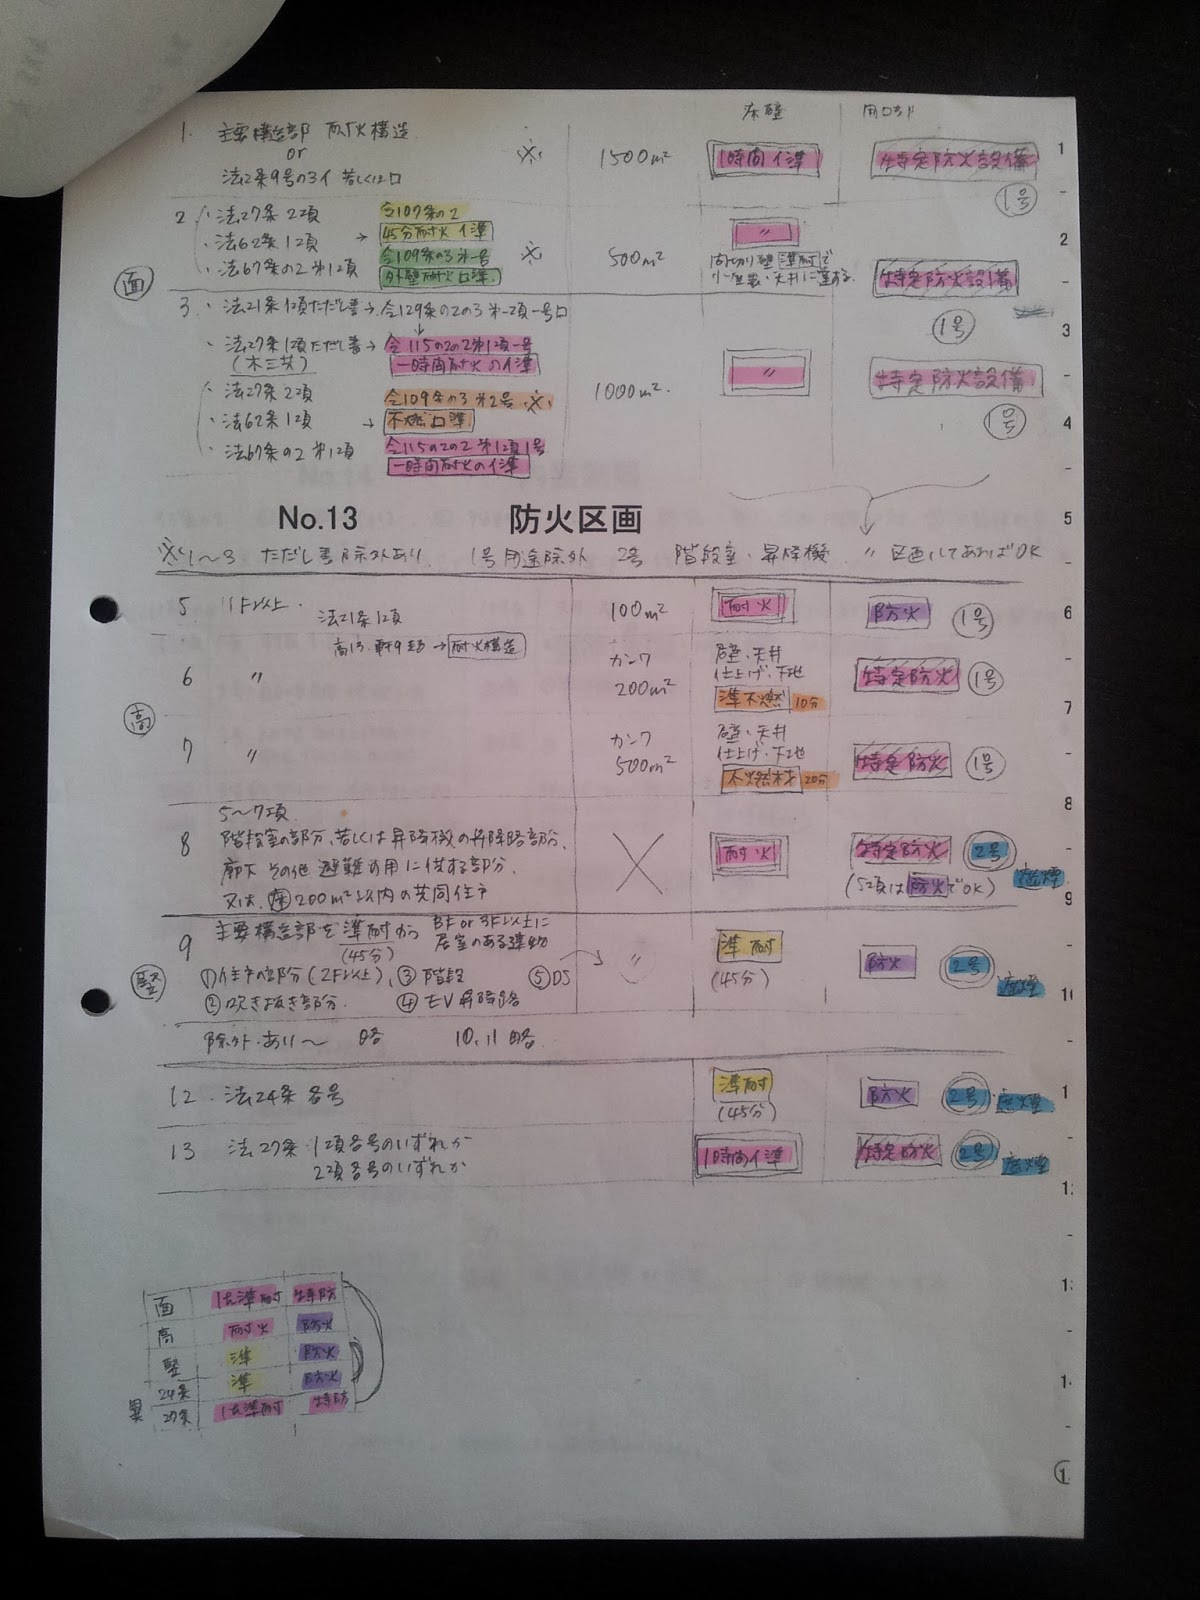 床壁 開口部
1. 主要構造部 耐火構造 ※ 1500m² 1時間イ準 特定防火設備 1号
or
法2条9号の3イ 若しくはロ
面
2 ・法27条2項 令107条の2 500m² 〃
・法62条1項 → 45分耐火イ準 間切り壁 準耐で
・法67条の2 第1項 令109条の3第一号 ※ 天井に達する. 特定防火設備 1号
外壁耐火ロ準.
3 ・法21条1項ただし書→令129条の2の3第一項一号ロ
・法27条1項ただし書→令115の2の2第1項一号 1000m². 〃 特定防火設備 1号
(木三共) 一時間耐火のイ準
・法27条2項 令109条の3第2号 ※
・法62条1項 → 不燃ロ準
・法67条の2第1項 令115の2の2第1項1号
一時間耐火のイ準
No.13 防火区画
※1〜3 ただし書除外あり 1号用途除外 2号 階段室・昇降機 〃 区画してあればOK
高
5 11F以上. 法21条1項 100m² 耐火 防火 1号
高13.軒9超→耐火構造
6 〃 カンワ 200m² 壁・天井 仕上げ・下地 準不燃 10分 特定防火 1号
7 〃 カンワ 500m² 壁・天井 仕上げ・下地 不燃材 20分 特定防火 1号
5〜7項
8 階段室の部分、若しくは昇降機の昇降路部分、 耐火 特定防火 2号 遮煙
廊下 その他 避難の用に供する部分 (5項は防火でOK)
又は、床200m²以内の共同住戸
竪
9 主要構造部を準耐から BF or 3F以上に 〃 準耐 防火 2号 遮煙
(45分) 居室のある建物 (45分)
①住戸の部分(2F以上)、③階段 ⑤DS
②吹き抜き部分. ④EV昇降路
除外あり〜 略 10.11略
12. 法24条 各号 準耐 (45分) 防火 2号 遮煙
13 法27条 1項各号のいずれか 1時間イ準 特定防火 2号 遮煙
2項各号のいずれか
面 1h準耐 特防
高 耐火 防火
竪 準 防火
異 24条 準 防火
27条 1h準耐 特防
1
2
3
4
5
6
7
8
9
10